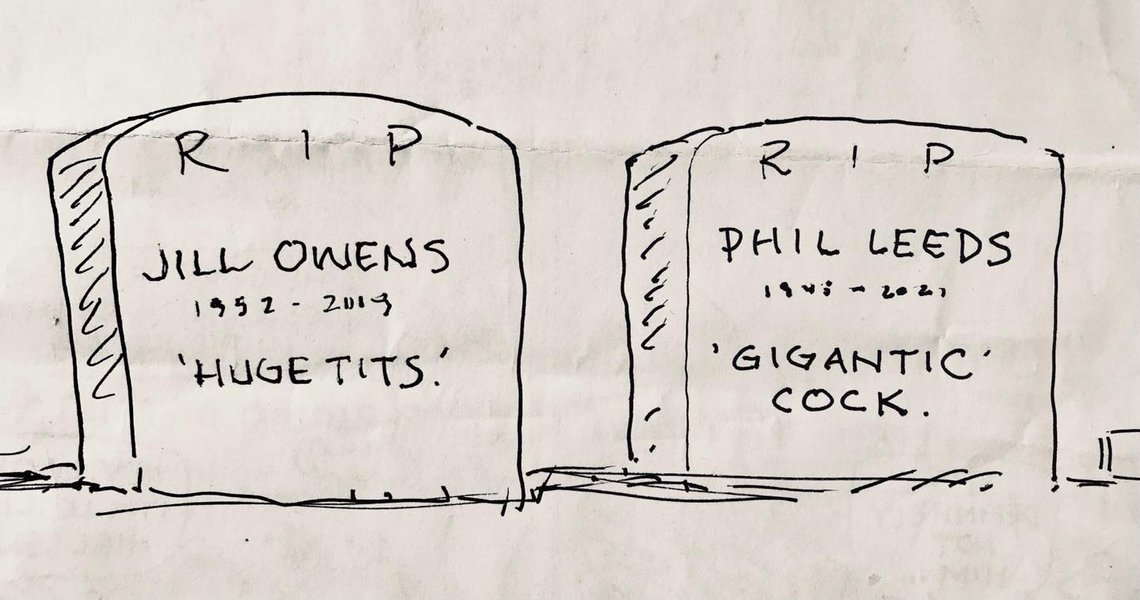 R I P
JILL OWENS
1952 - 2019
'HUGE TITS.'
R I P
PHIL LEEDS
'GIGANTIC'
COCK.